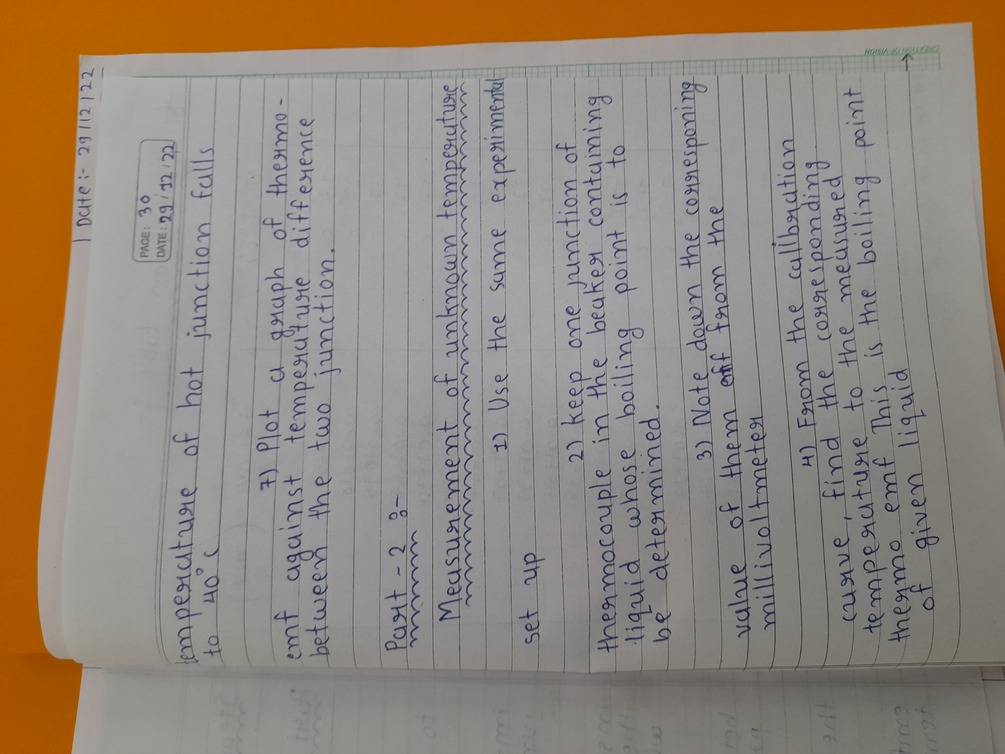 Date :- 29/12/22
PAGE: 30
DATE: 29/12/22
temperature of hot junction falls
to 40°c
7) Plot a graph of thermo-
emf against temperature difference
between the two junction.
Part - 2 :-
Measurement of unknown temperature
1) Use the same experimental
set up
2) Keep one junction of
thermocouple in the beaker containing
liquid whose boiling point is to
be determined.
3) Note down the corresponing
value of them emf from the
millivoltmeter
4) From the calibration
curve, find the corresponding
temperature to the measured
thermo emf This is the boiling point
of given liquid
CREATION OF VISION